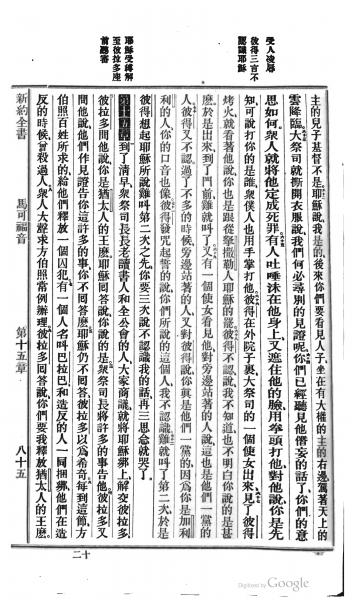 受人凌辱
彼得三言不
認識耶穌
耶穌受縛解
至彼拉多座
前聽審
主的兒子基督不是耶穌說我是的後來你們要看見人子坐在有大權的主的右邊駕著天上的
雲降臨大祭司就撕開衣服說我們何必尋別的見證呢你們已經聽見他僭妄的話了你們的意
思如何衆人就將他定成死罪有人吐唾沫在他身上又遮住他的臉用拳頭打他對他說你是先
知可說打你的是誰衆僕人也用手掌打他彼得在外院子裏大祭司的一個使女出來見了彼得
烤火就看著他說你也是跟從拿撒勒人耶穌的彼得不承認說我不知道也不明白你說的是甚
麽於是出來到了門前雞就叫了又有一個使女看見他對旁邊站著的人說這也是他們一黨的
人彼得又不認過了不多的時候旁邊站著的人又對彼得說你眞是他們一黨的因爲你是加利
利的人你的口音也像彼得發咒起誓的說你們所說的這個人我不認識雞就叫了第二次於是
彼得想起耶穌所說雞叫第二次之先你要三次說不認識我的話再三思念就哭了
第十五章到了淸早衆祭司長長老讀書人和全公會的人大家商議就將耶穌綁上解交彼拉多
彼拉多問他說你是猶太人的王麽耶穌回答說你說的是衆祭司長將許多的事告他彼拉多又
問他說他們作見證告你這許多的事你不回答麽耶穌仍不回答彼拉多以爲希奇每到這節方
伯照百姓所求的給他們釋放一個囚犯有一個人名叫巴拉巴和造反的人一同捆綁他們在造
反的時候曾殺過人衆人大聲求方伯照常例辦理彼拉多回答說你們要我釋放猶太人的王麽
新約全書 馬可福音 第十五章 八十五
二十
Digitized by Google